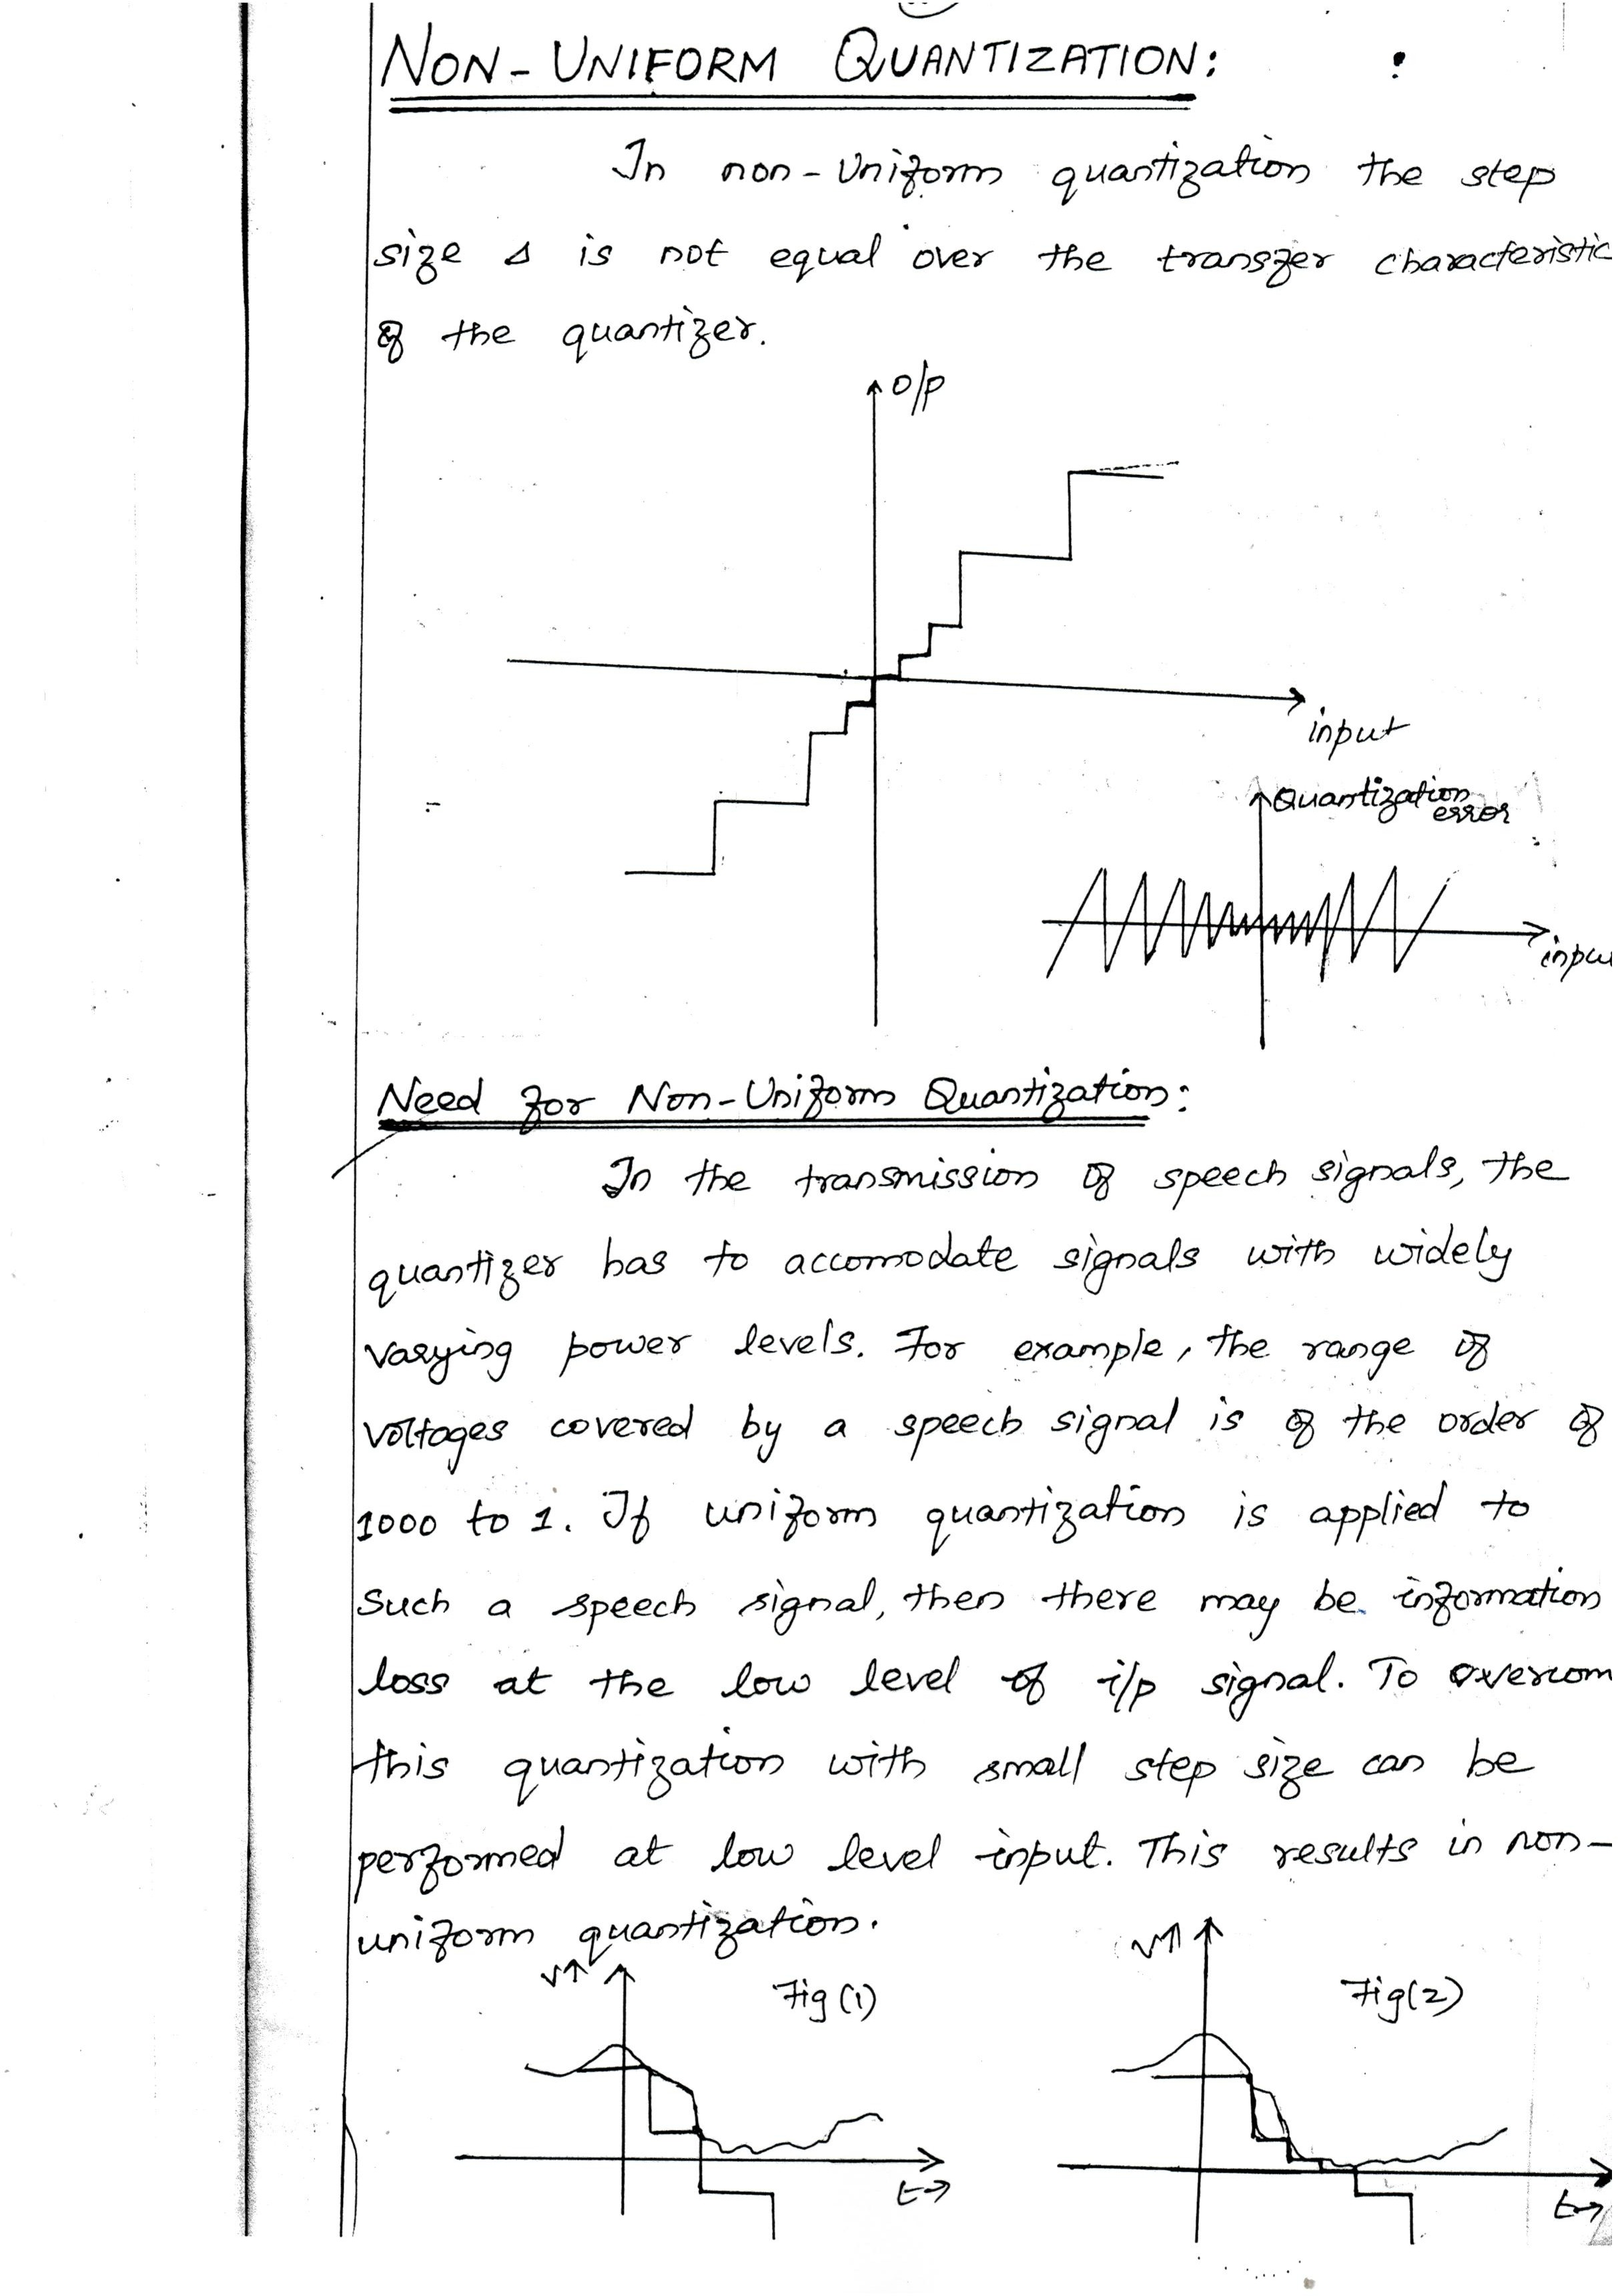 NON-UNIFORM QUANTIZATION:
In non-Uniform quantization the step
size Δ is not equal over the transfer characteristic
of the quantizer.
O/p
input
Quantization
error
inpu
Need for Non-Uniform Quantization:
In the transmission of speech signals, the
quantizer has to accomodate signals with widely
varying power levels. For example, the range of
voltages covered by a speech signal is of the order of
1000 to 1. If uniform quantization is applied to
Such a speech signal, then there may be information
loss at the low level of i/p signal. To overcom
this quantization with small step size can be
performed at low level input. This results in non-
uniform quantization.
V↑ Fig (1)
V↑ Fig(2)
t→
t→